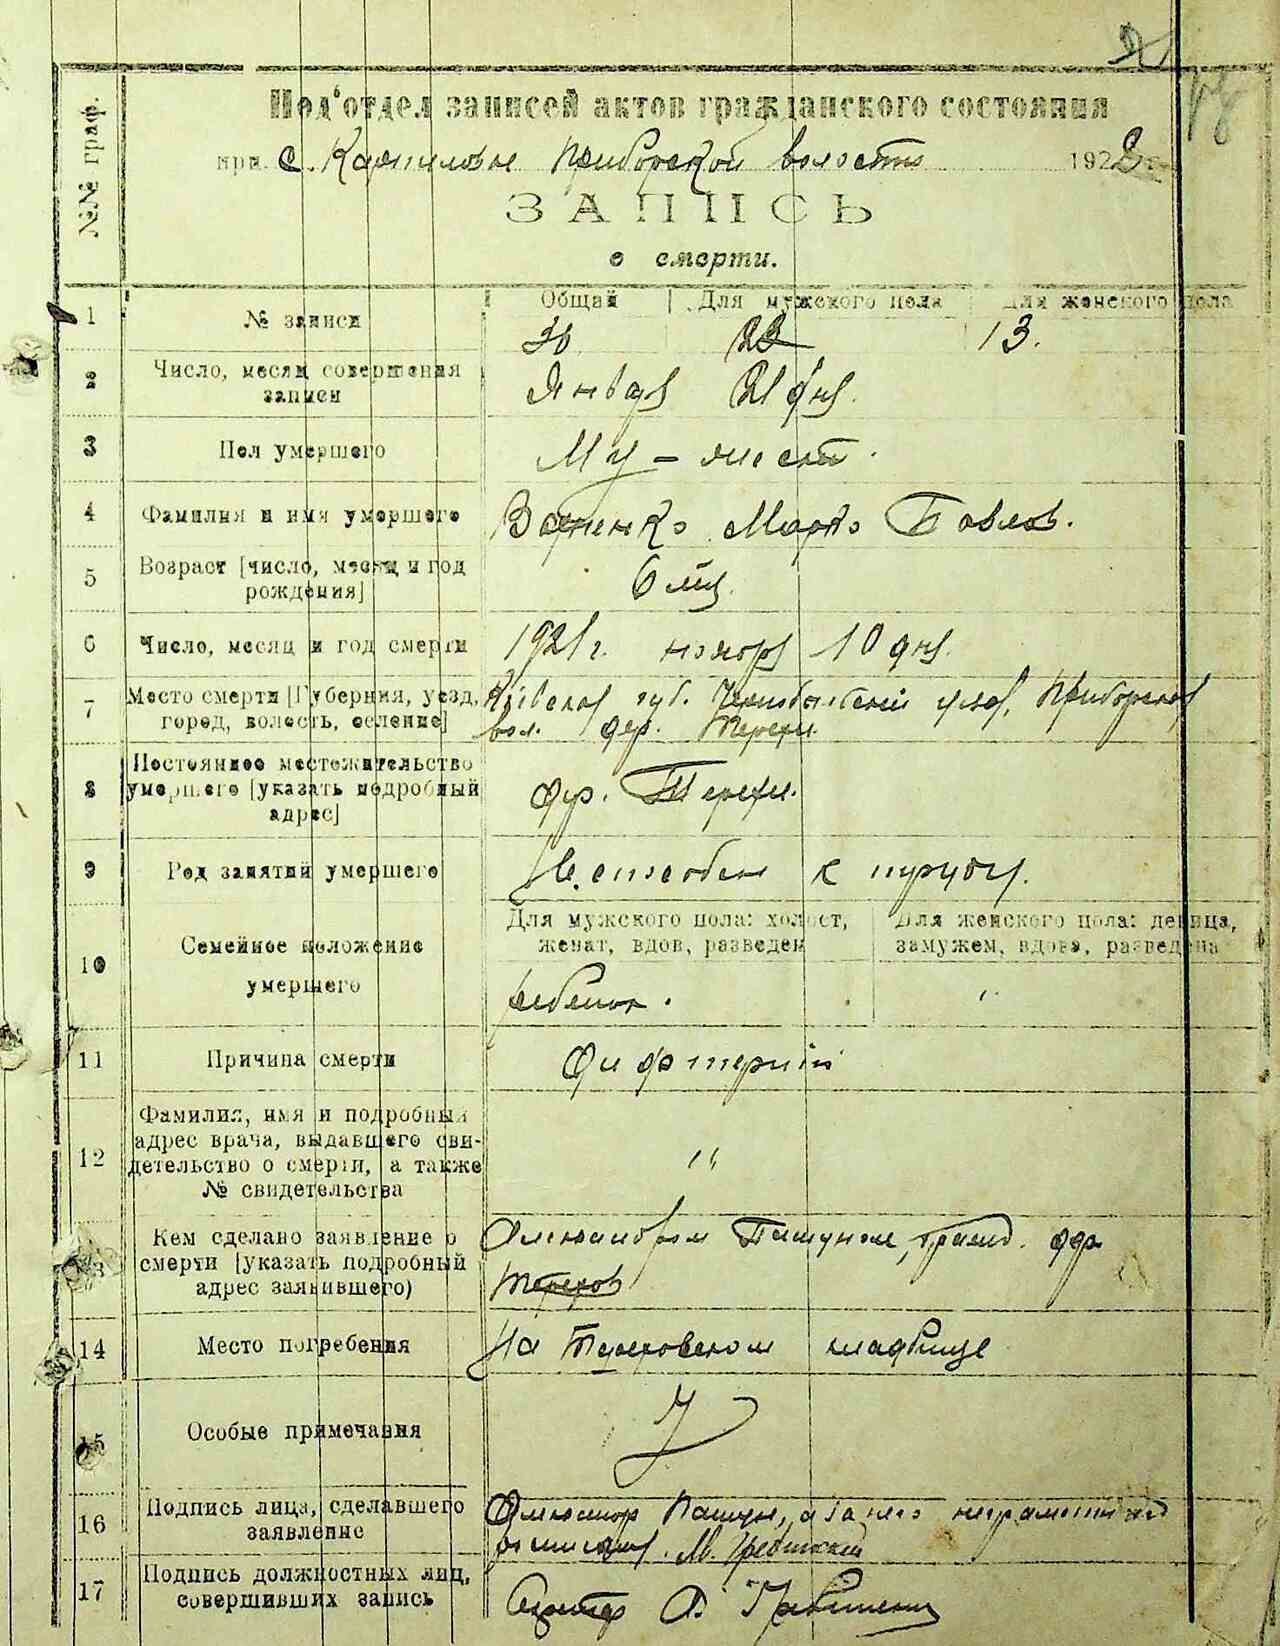 №№ граф.
Под'отдел записей актов гражданского состояния
при с. Карпиловке Приборской волости 1922 г.
ЗАПИСЬ
о смерти.
1 № записи Общая Для мужского пола Для женского пола
36 23 13.
2 Число, месяц совершения записи Января 21 дня.
3 Пол умершего Му-жеский.
4 Фамилия и имя умершего Марко Павлов.
5 Возраст [число, месяц и год рождения] 6 мц.
6 Число, месяц и год смерти 1921 г. ноября 10 дня.
7 Место смерти [Губерния, уезд, город, волость, селение] Киевская губ. Чернобыльский уезд, Приборская
вол. дер. Терехи.
8 Постоянное местожительство умершего [указать подробный адрес] дер. Терехи.
9 Род занятий умершего Не способен к труду.
10 Семейное положение умершего Для мужского пола: холост, женат, вдов, разведен Для женского пола: девица, замужем, вдова, разведена
ребенок. "
11 Причина смерти Дифтерий
12 Фамилия, имя и подробный адрес врача, выдавшего свидетельство о смерти, а также № свидетельства "
13 Кем сделано заявление о смерти [указать подробный адрес заявившего) Александром Пашуном, гражд. дер.
Терехов
14 Место погребения На Тереховском кладбище
15 Особые примечания
16 Подпись лица, сделавшего заявление Александр Пашун, а за него неграмотного
росписался М.
17 Подпись должностных лиц, совершивших запись Секретарь